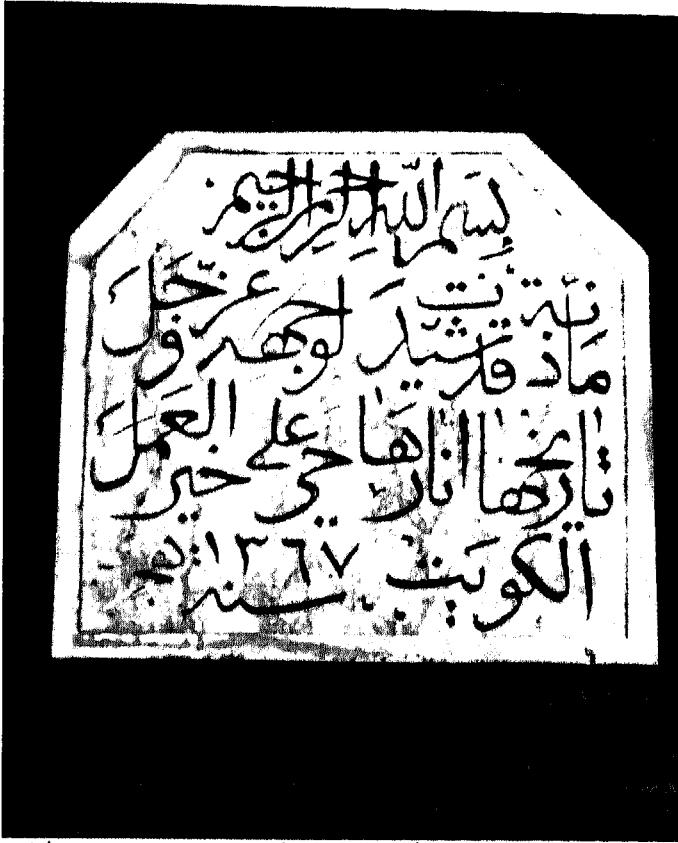 بسم الله الرحمن الرحيم
مأذنة قد شيّدت لوجهه عزّ وجل
تاريخها انارها حي على خير العمل
الكويت سنه ١٣٦٧